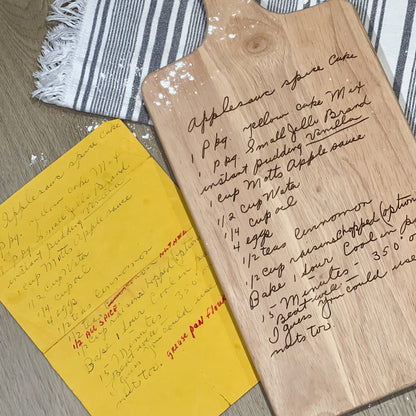 Applesauce spice cake
1 Pkg yellow cake Mix
1 Pkg. Small Jello Brand
instant pudding Vanilla
1 cup Motts Apple sauce
1/2 cup Wata
1/4 cup oil
4 eggs
1/2 teas Cinnomon
1/2 cup raisins chopped (option
Bake 1 hour Cool in pa
15 Minutes - 350°
Beat well
I guess you could use
nuts too.
Applesauce spice Cake
1 Pkg yellow cake Mix
1 Pkg. Small Jello Brand
instant pudding Vanilla
1 cup Motts Apple sauce
1/2 cup Wata
1/4 cup oil
4 eggs
1/2 teas Cinnomon
1/2 ALL SPICE
1/2 cup raisins chopped (option
Bake 1 hour Cool in
15 Minutes - 350°
grease pan flour
Beat well
I guess you could us
nuts too.